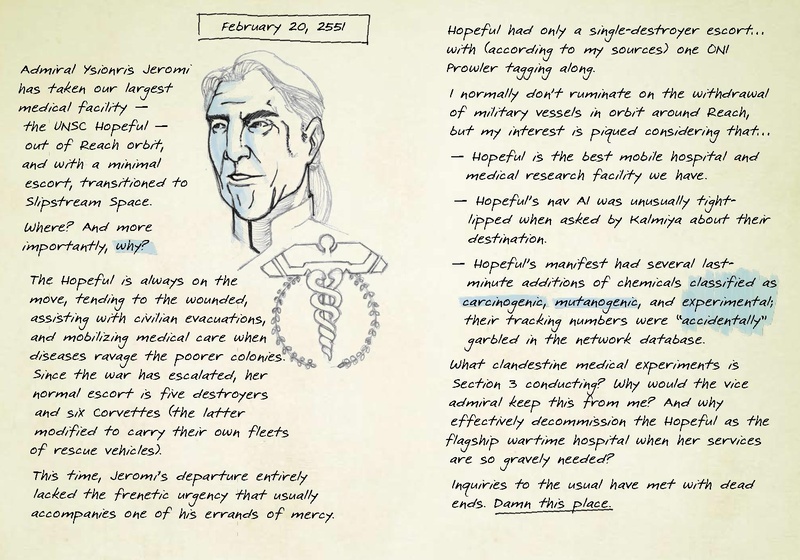 February 20, 2551
Admiral Ysionris Jeromi
has taken our largest
medical facility —
the UNSC Hopeful —
out of Reach orbit,
and with a minimal
escort, transitioned to
Slipstream Space.
Where? And more
importantly, why?
The Hopeful is always on the
move, tending to the wounded,
assisting with civilian evacuations,
and mobilizing medical care when
diseases ravage the poorer colonies.
Since the war has escalated, her
normal escort is five destroyers
and six Corvettes (the latter
modified to carry their own fleets
of rescue vehicles).
This time, Jeromi's departure entirely
lacked the frenetic urgency that usually
accompanies one of his errands of mercy.
Hopeful had only a single-destroyer escort...
with (according to my sources) one ONI
Prowler tagging along.
I normally don't ruminate on the withdrawal
of military vessels in orbit around Reach,
but my interest is piqued considering that...
— Hopeful is the best mobile hospital and
medical research facility we have.
— Hopeful's nav AI was unusually tight-
lipped when asked by Kalmiya about their
destination.
— Hopeful's manifest had several last-
minute additions of chemicals classified as
carcinogenic, mutanogenic, and experimental;
their tracking numbers were "accidentally"
garbled in the network database.
What clandestine medical experiments is
Section 3 conducting? Why would the vice
admiral keep this from me? And why
effectively decommission the Hopeful as the
flagship wartime hospital when her services
are so gravely needed?
Inquiries to the usual have met with dead
ends. Damn this place.